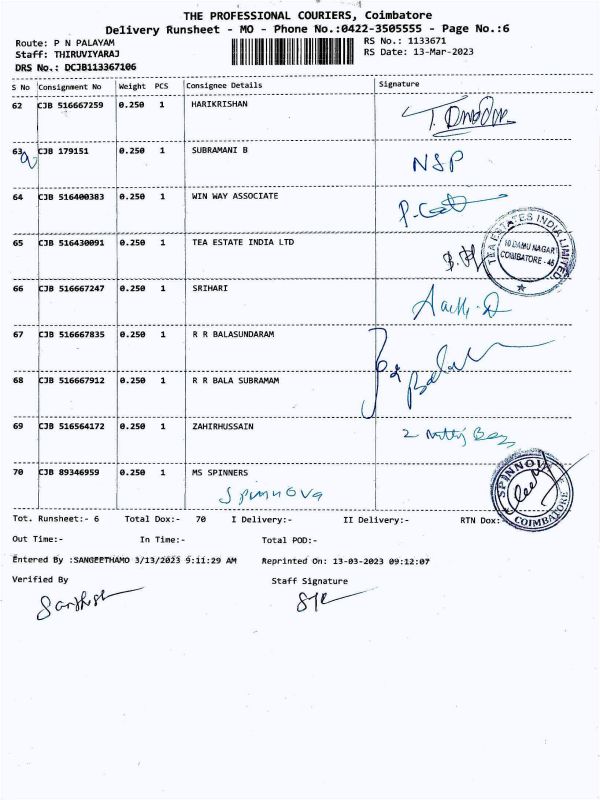 THE PROFESSIONAL COURIERS, Coimbatore
Delivery Runsheet - MO - Phone No.:0422-3505555 - Page No.:6
Route: P N PALAYAM RS No.: 1133671
Staff: THIRUVIYARAJ RS Date: 13-Mar-2023
DRS No.: DCJB113367106
S No Consignment No Weight PCS Consignee Details Signature
62 CJB 516667259 0.250 1 HARIKRISHAN
63 CJB 179151 0.250 1 SUBRAMANI B NSP
64 CJB 516400383 0.250 1 WIN WAY ASSOCIATE
65 CJB 516430091 0.250 1 TEA ESTATE INDIA LTD
TEA ESTATES INDIA LIMITED
10 DAMU NAGAR
COIMBATORE - 45
66 CJB 516667247 0.250 1 SRIHARI
67 CJB 516667835 0.250 1 R R BALASUNDARAM
68 CJB 516667912 0.250 1 R R BALA SUBRAMAM
69 CJB 516564172 0.250 1 ZAHIRHUSSAIN
70 CJB 89346959 0.250 1 MS SPINNERS
Spinnova
SPINNOVA
COIMBATORE
Tot. Runsheet:- 6 Total Dox:- 70 I Delivery:- II Delivery:- RTN Dox:-
Out Time:- In Time:- Total POD:-
Entered By :SANGEETHAMO 3/13/2023 9:11:29 AM Reprinted On: 13-03-2023 09:12:07
Verified By Staff Signature